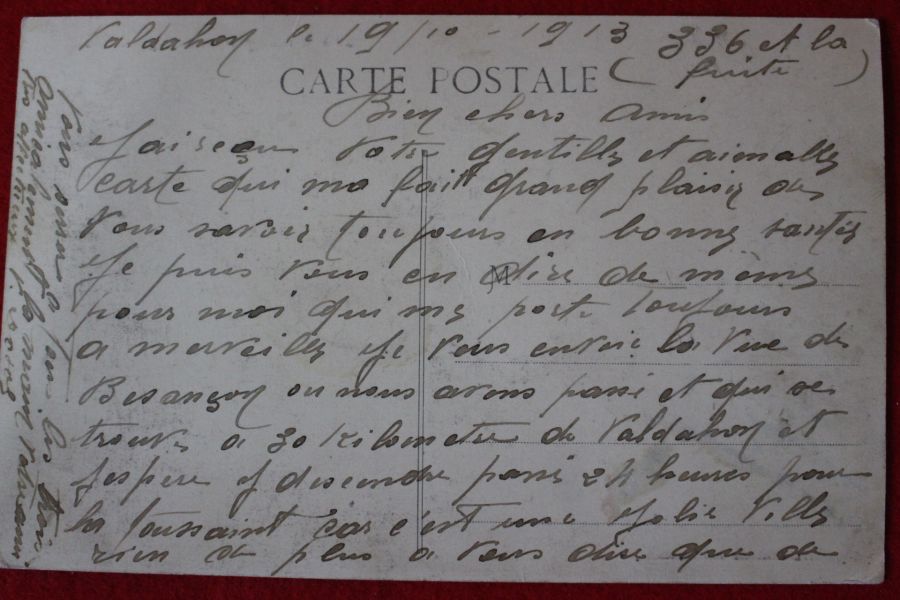 Valdahon le 19/10 - 1913 336 et la
(suite)
CARTE POSTALE
Bien chers amis
J'ai reçu votre gentille et aimable
carte qui ma fait grand plaisir de
vous savoir toujours en bonne santée
Je puis vous en dire de même
M
pour moi qui me porte toujours
a merveille je vous envoie la vue de
Besançon ou nous avons passé et qui se
trouve a 30 kilometre de Valdahon et
j'espere y descendre passé 24 heures pour
la Toussaint car c'est une jolie ville
rien de plus a vous dire que de
vous serrer a tous les trois
amicalement la main